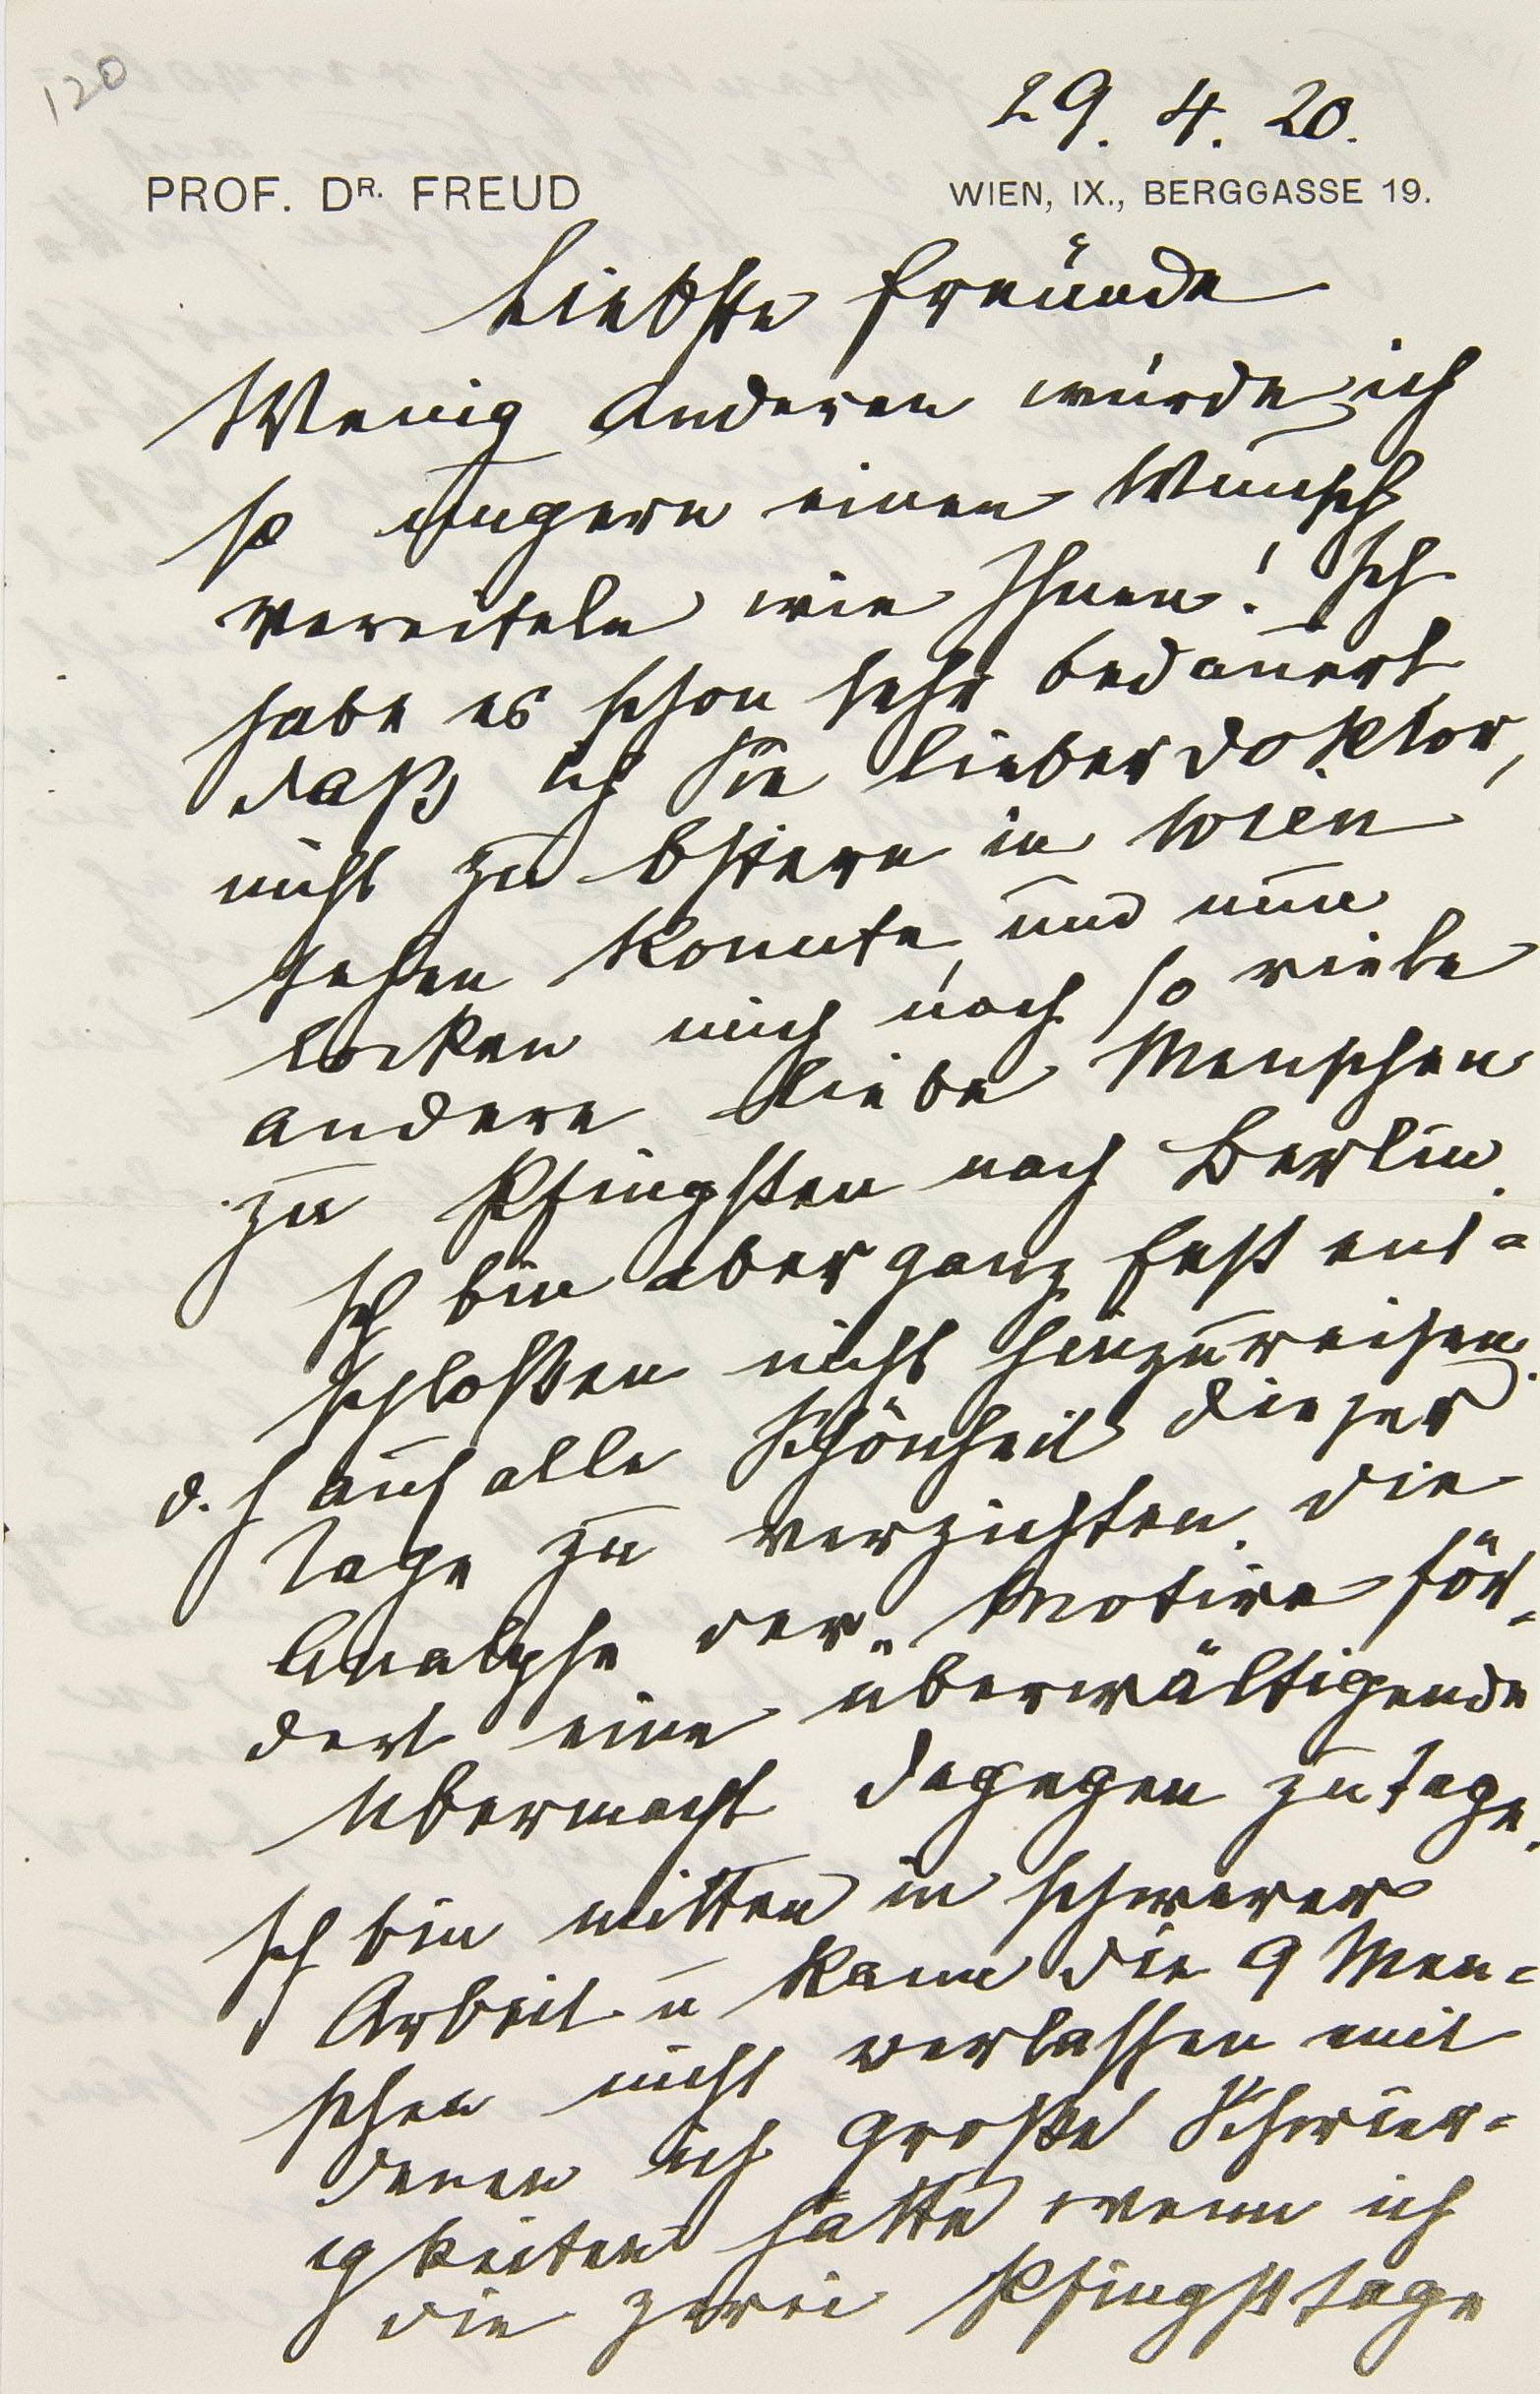 120
29. 4. 20.
PROF. DR. FREUD WIEN, IX., BERGGASSE 19.
Liebste Freunde
Wenig Anderen würde ich
so ungern einen Wunsch
vereiteln wie Ihnen! Ich
habe es schon sehr bedauert
daß ich Sie lieber Doktor,
nicht zu Ostern in Wien
sehen konnte, und nun
locken mich noch so viele
andere liebe Menschen
zu Pfingsten nach Berlin.
Ich bin aber ganz fest ent=
schloßen nicht hinzureisen.
d. h auf alle Schönheit dieser
Tage zu verzichten. Die
Analyse der Motive för=
dert eine überwältigende
Übermacht dagegen zutage.
Ich bin mitten in schwerer
Arbeit u kann die 9 Men=
schen nicht verlassen mit
denen ich große Schwier=
igkeiten hätte wenn ich
die zwei Pfingsttage